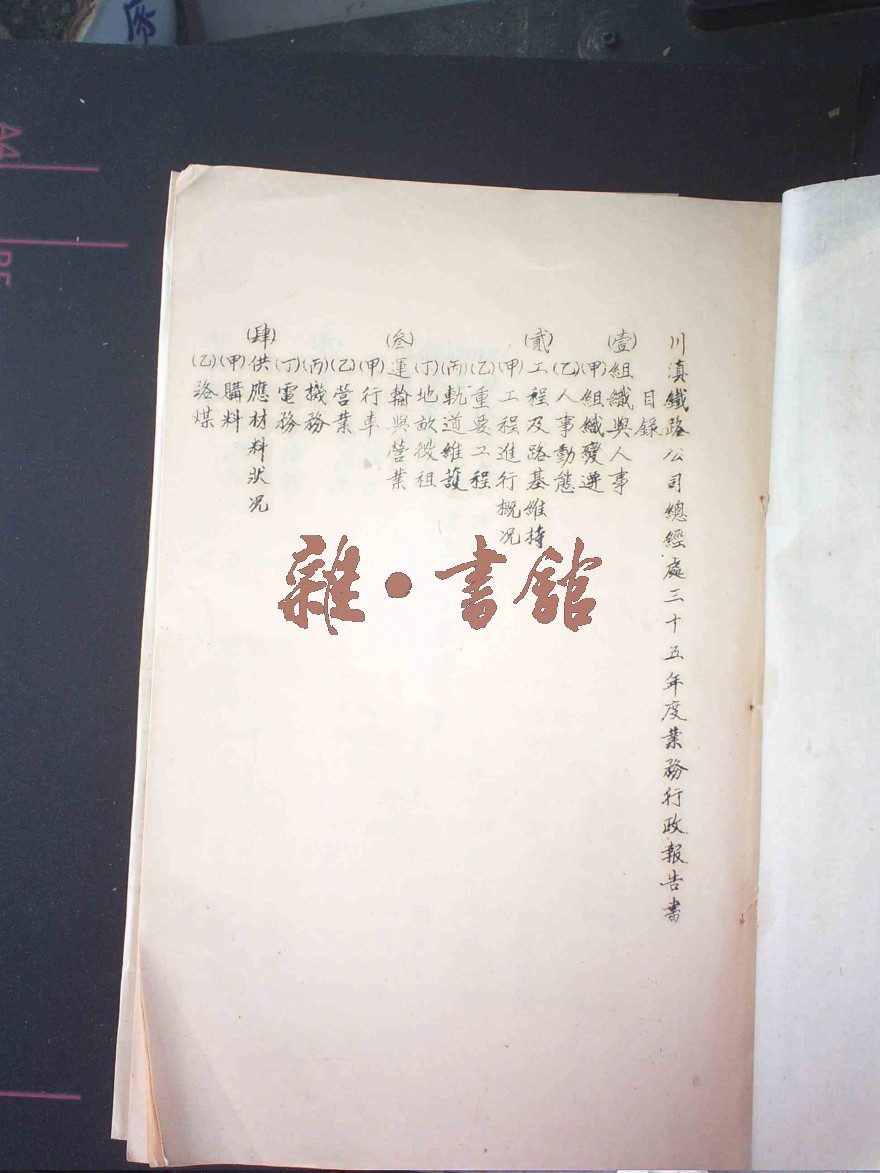 川滇鐵路公司總經處三十五年度業務行政報告書
目錄
(壹)組織與人事
(甲)組織變遷
(乙)人事動態
(貳)工程及路基維持
(甲)工程進行概况
(乙)重要工程
(丙)軌道維護
(丁)地畝徵租
(叁)運輸與營業
(甲)行車
(乙)營業
(丙)機務
(丁)電務
(肆)供應材料狀况
(甲)購料
(乙)路煤
雜·書館
A4